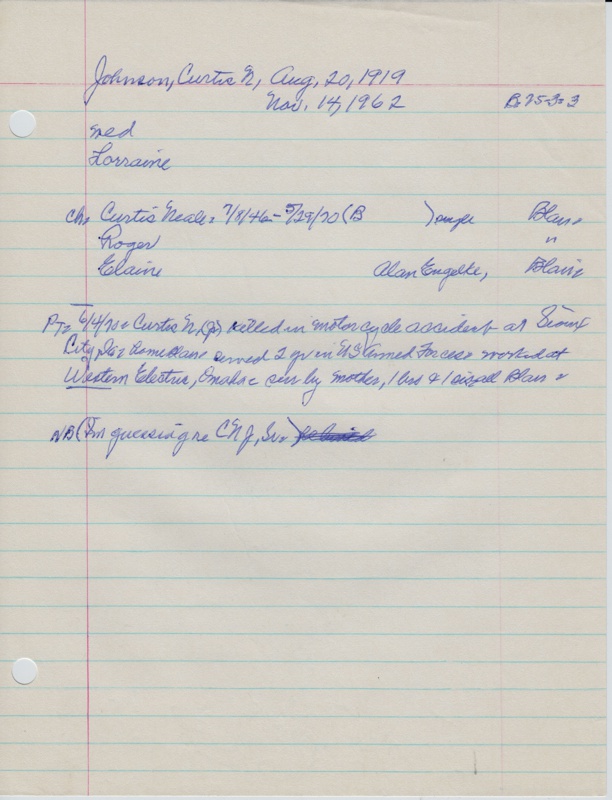 Johnson, Curtis N, Aug. 20, 1919
Nov. 14, 1962 B-25-3-3
wed
Lorraine
ch: Curtis Neale: 7/8/46 - 5/29/70 (B ) single Blair
Roger "
Elaine Alan Engelke, Blair
PT: 6/4/70: Curtis N, (Jr) killed in motorcycle accident at Sioux
City, Ia: Home Blair served 2 yr in US Armed Forces: worked at
Western Electric, Omaha: surv by mother, 1 bro & 1 sis all Blair
NB (I'm guessing re CNJ, Sr.)